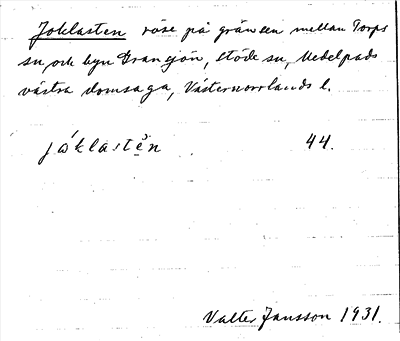 Joklasten röse på gränsen mellan Torps
sn, och byn Gransjön, Stöde sn, Medelpads
västra domsaga, Västernorrlands l.
jóklastẹ̆n 44.
Valter Jansson 1931.